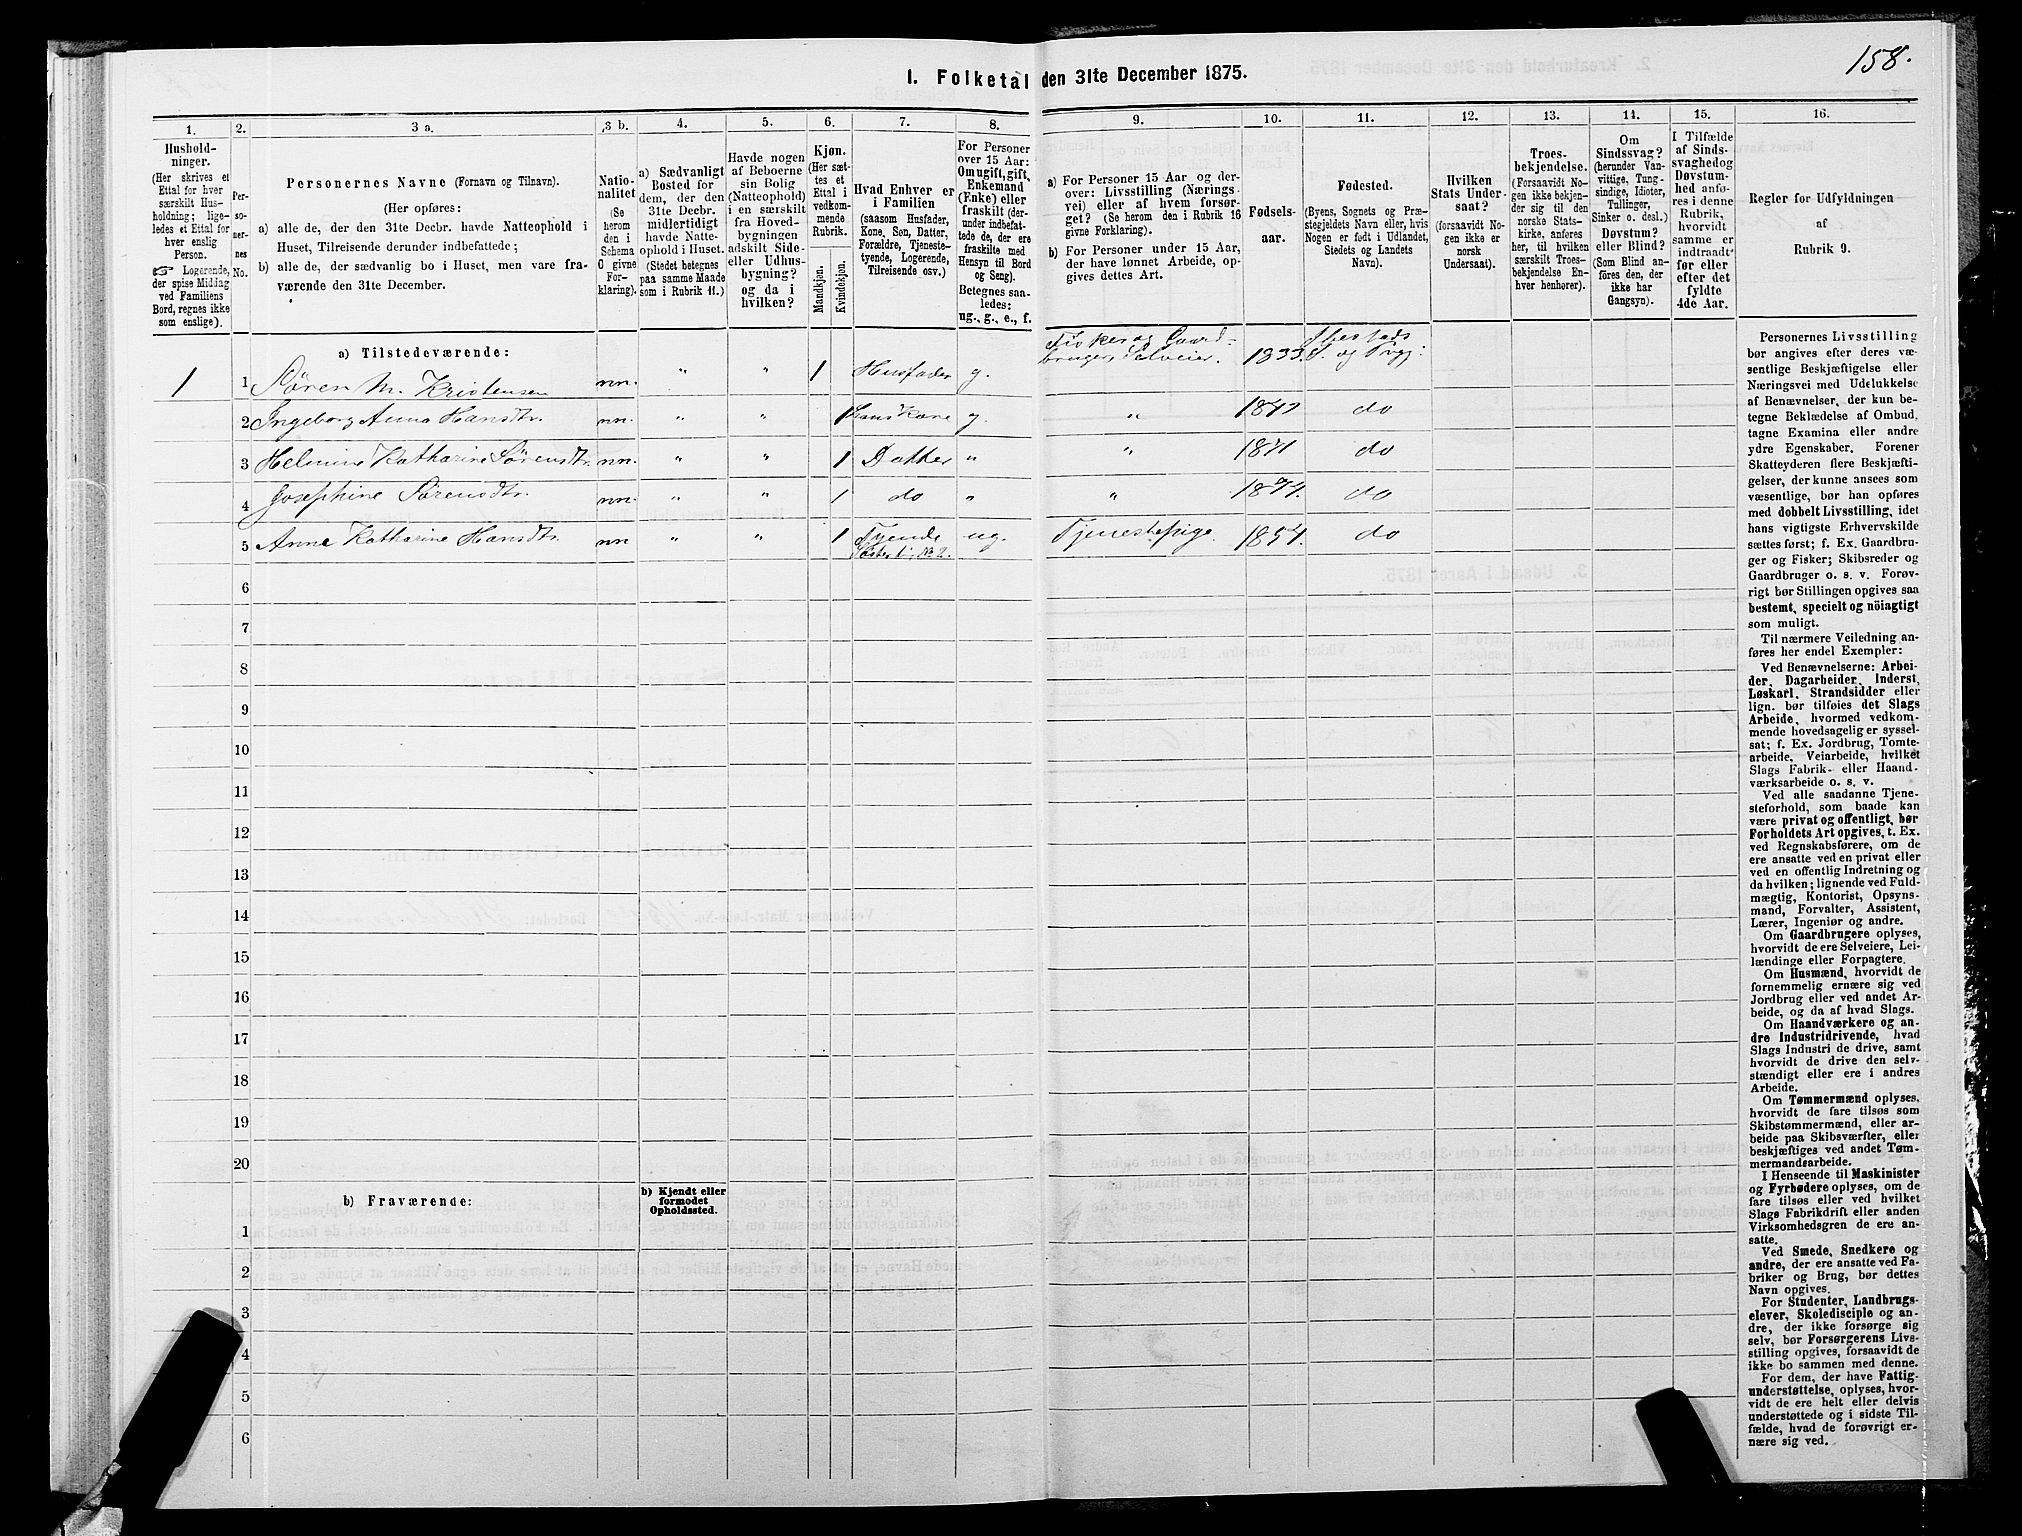 158.
1. Folketal den 31te December 1875.
1. 2. 3 a. 3 b. 4. 5. 6. 7. 8. 9. 10. 11. 12. 13. 14. 15. 16.
Hushold-
ninger.
(Her skrives et
Ettal for hver
særskilt Hus-
holdning; lige-
ledes et Ettal for
hver enslig
Person.
☞ Logerende,
der spise Middag
ved Familiens
Bord, regnes ikke
som enslige).
Per-
sone-
nes
No.
Personernes Navne (Fornavn og Tilnavn).
(Her opføres:
a) alle de, der den 31te Decbr. havde Natteophold i
Huset, Tilreisende derunder indbefattede;
b) alle de, der sædvanlig bo i Huset, men vare fra-
værende den 31te December.
Natio-
nalitet
(Se
herom
den i
Schema
C givne
For-
klaring).
a) Sædvanligt
Bosted for
dem, der den
31te Decbr.
midlertidigt
havde Natte-
ophold i Huset.
(Stedet betegnes
paa samme Maade
som i Rubrik 11.)
Havde nogen
af Beboerne
sin Bolig
(Natteophold)
i en særskilt
fra Hoved-
bygningen
adskilt Side-
eller Udhus-
bygning?
og da i
hvilken?
Kjøn.
(Her sæt-
tes et
Ettal i
vedkom-
mende
Rubrik.
Mandkjøn.
Kvindekjøn.
Hvad Enhver er
i Familien
(saasom Husfader,
Kone, Søn, Datter,
Forældre, Tjeneste-
tyende, Logerende,
Tilreisende osv.)
For Personer
over 15 Aar:
Om ugift, gift,
Enkemand
(Enke) eller
fraskilt (der-
under indbefat-
tede de, der ere
fraskilte med
Hensyn til Bord
og Seng).
Betegnes saa-
ledes:
ug., g., e., f.
a) For Personer 15 Aar og der-
over: Livsstilling (Nærings-
vei) eller af hvem forsør-
get? (Se herom den i Rubrik 16
givne Forklaring).
b) For Personer under 15 Aar,
der have lønnet Arbeide, op-
gives dettes Art.
Fødsels-
aar.
Fødested.
(Byens, Sognets og Præ-
stegjeldets Navn eller, hvis
Nogen er født i Udlandet,
Stedets og Landets
Navn).
Hvilken
Stats Under-
saat?
(forsaavidt No-
gen ikke er
norsk
Undersaat).
Troes-
bekjendelse.
(Forsaavidt No-
gen ikke bekjen-
der sig til den
norske Stats-
kirke, anføres
her, til hvilken
særskilt Troes-
bekjendelse En-
hver henhører).
Om
Sindssvag?
(herunder Van-
vittige, Tung-
sindige, Idioter,
Tullinger,
Sinker o. desl.)
Døvstum?
eller Blind?
(Som Blind an-
føres den, der
ikke har
Gangsyn).
I Tilfælde
af Sinds-
svaghed og
Døvstum-
hed anfø-
res i denne
Rubrik,
hvorvidt
samme er
indtraadt
før eller
efter det
fyldte
4de Aar.
Regler for Udfyldningen
af
Rubrik 9.
a) Tilstedeværende:
1 1 Søren M. Kristensen nn. " " 1 Husfader g. Fisker og Gaard-bruger, Selveier. 1833.
2 Ingeborg Anna Hansdtr. nn. " " 1 hans Kone g. " do
3 Helmine Katharine Sørensdtr. nn. " " 1 Datter " " do
4 Josephine Sørensdtr. nn. " " 1 do " " 1874. do
5 Anne Katharine Hansdtr. nn " " 1 Tyende ug. Tjenestepige 1854. do
Søster t. No 2.
6
7
8
9
10
11
12
13
14
15
16
17
18
19
20
b) Fraværende:
b) Kjendt eller
formodet
Opholdssted.
1
2
3
4
5
6
Personernes Livsstilling
bør angives efter deres væ-
sentlige Beskjæftigelse eller
Næringsvei med Udelukkelse
af Benævnelser, der kun be-
tegne Beklædelse af Ombud,
tagne Examina eller andre
ydre Egenskaber. Forener
Skatteyderen flere Beskjæfti-
gelser, der kunne ansees som
væsentlige, bør han opføres
med dobbelt Livsstilling, idet
hans vigtigste Erhvervskilde
sættes først; f. Ex. Gaardbru-
ger og Fisker; Skibsreder og
Gaardbruger o. s. v. Forøv-
rigt bør Stillingen opgives saa
bestemt, specielt og nöiagtigt
som muligt.
Til nærmere Veiledning an-
føres her endel Exempler:
Ved Benævnelserne: Arbei-
der, Dagarbeider, Inderst,
Løskarl, Strandsidder eller
lign. bør tilføies det Slags
Arbeide, hvormed vedkom-
mende hovedsagelig er syssel-
sat; f. Ex. Jordbrug, Tomte-
arbeide, Veiarbeide, hvilket
Slags Fabrik- eller Haand-
værksarbeide o. s. v.
Ved alle saadanne Tjene-
steforhold, som baade kan
være privat og offentligt, bør
Forholdets Art opgives, t. Ex.
ved Regnskabsførere, om de
ere ansatte ved en privat eller
ved en offentlig Indretning og
da hvilken; lignende ved Fuld-
mægtig, Kontorist, Opsyns-
mand, Forvalter, Assistent,
Lærer, Ingeniør og andre.
Om Gaardbrugere oplyses,
hvorvidt de ere Selveiere, Lei-
lændinge eller Forpagtere.
Om Husmænd, hvorvidt de
fornemmelig ernære sig ved
Jordbrug eller ved andet Ar-
beide, og da af hvad Slags.
Om Haandværkere og an-
dre Industridrivende, hvad
Slags Industri de drive, samt
hvorvidt de drive den selv-
stændigt eller ere i andres
Arbeide.
Om Tømmermænd oplyses,
hvorvidt de fare tilsøs som
Skibstømmermænd, eller ar-
beide paa Skibsværfter, eller
beskjæftiges ved andet Tøm-
mermandsarbeide.
I Henseende til Maskinister
og Fyrbødere oplyses, om de
fare tilsøs eller ved hvilket
Slags Fabrikdrift eller anden
Virksomhedsgren de ere an-
satte.
Ved Smede, Snedkere og
andre, der ere ansatte ved Fa-
briker og Brug, bør dettes
Navn opgives.
For Studenter, Landbrugs-
elever, Skoledisciple og an-
dre, der ikke forsørge sig
selv, bør Forsørgerens Livs-
stilling opgives, forsaavidt de
ikke bo sammen med denne.
For dem, der have Fattig-
understøttelse, oplyses, hvor-
vidt de ere helt eller delvis
understøttede og i sidste Til-
fælde, hvad de forøvrigt er-
nære sig ved.